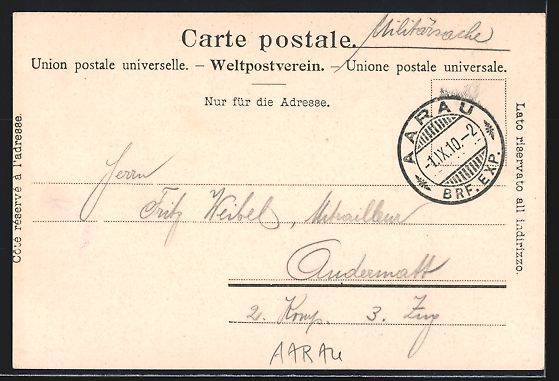 Carte postale.
Militärsache
Union postale universelle. – Weltpostverein. – Unione postale universale.
Nur für die Adresse.
AARAU
1.IX.10.-2
BRF. EXP.
Côté réservé à l'adresse.
Lato riservato all indirizzo.
Herrn
Fritz Weibel, Mitrailleur
Andermatt
2. Komp. 3. Zug
AARAU